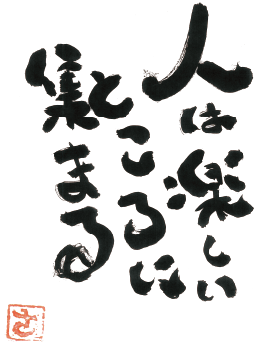 人は楽しい
ところに
集まる
さ